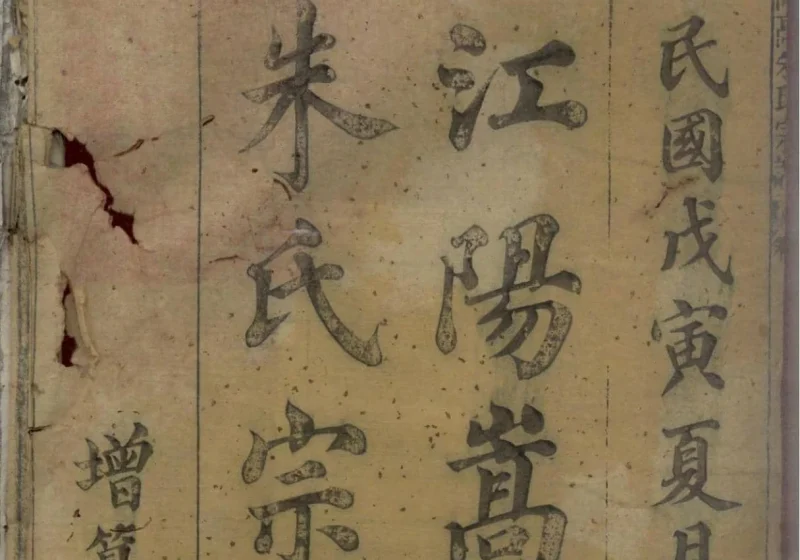 民國戊寅夏月
江陽嵩
朱氏宗
增